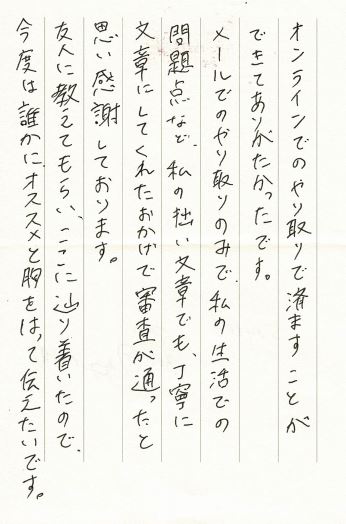 オンラインでのやり取りで済ますことが
できてありがたかったです。
メールでのやり取りのみで、私の生活での
問題点など、私の拙い文章でも、丁寧に
文章にしてくれたおかげで審査が通ったと
思い感謝しております。
友人に教えてもらい、ここに辿り着いたので、
今度は誰かに、オススメと胸をはって伝えたいです。